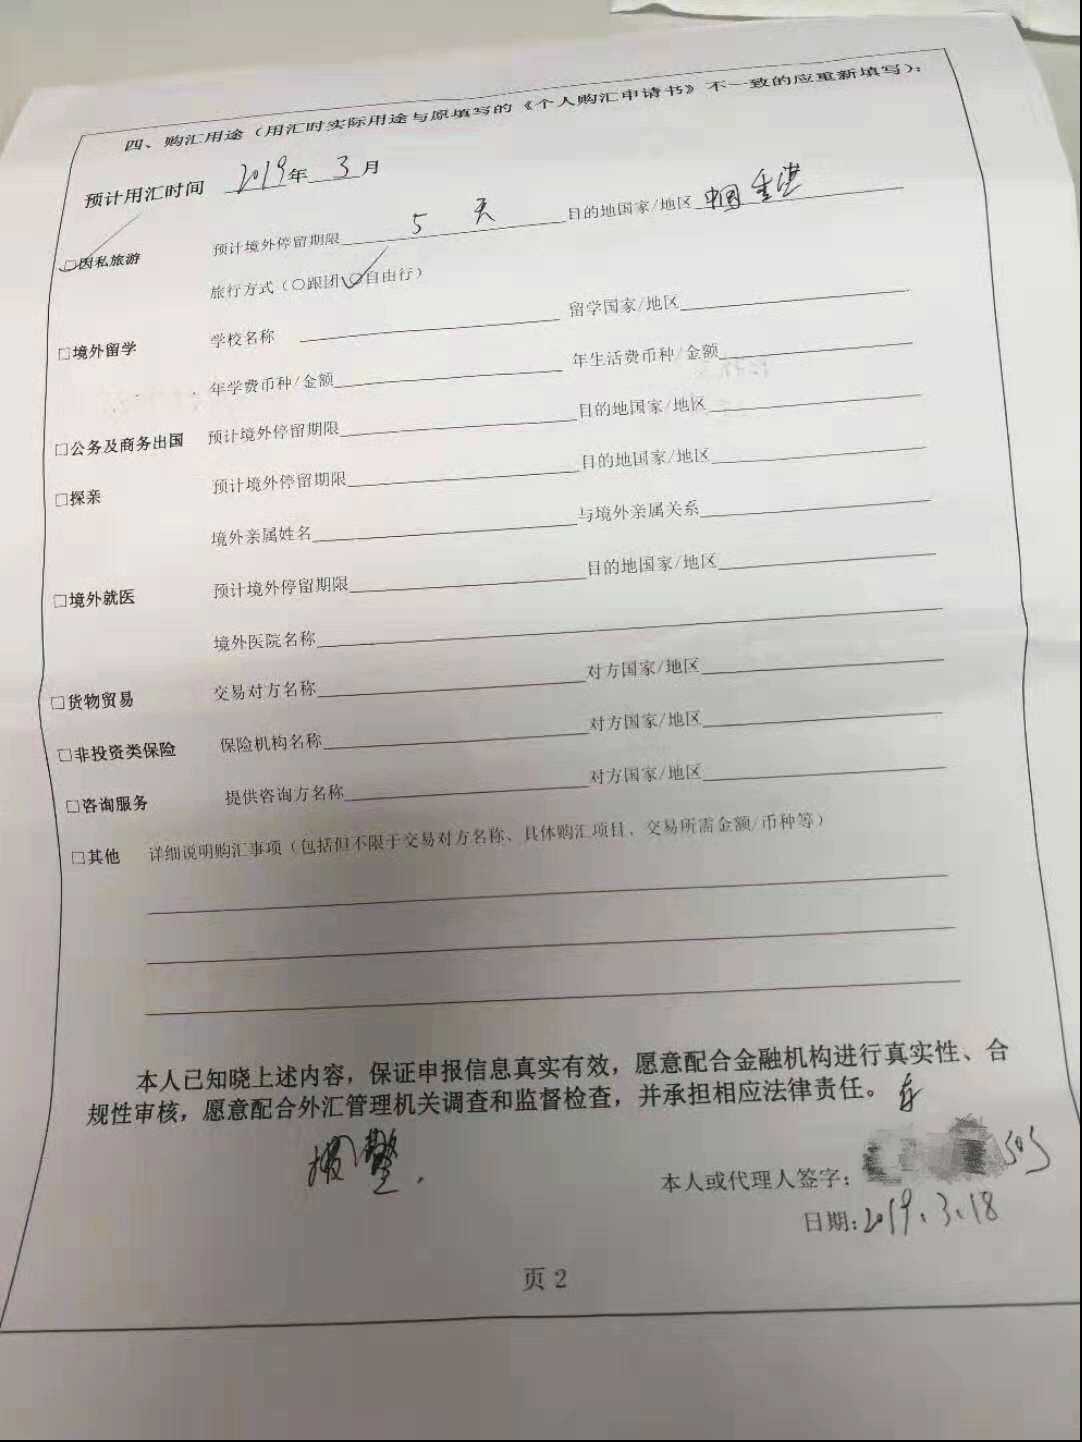 四、购汇用途（用汇时实际用途与原填写的《个人购汇申请书》不一致的应重新填写）：
预计用汇时间 2019年 3 月
□因私旅游 预计境外停留期限 5 天 目的地国家/地区 中国香港
旅行方式（○跟团 ○自由行）
□境外留学 学校名称 留学国家/地区
年学费币种/金额 年生活费币种/金额
□公务及商务出国 预计境外停留期限 目的地国家/地区
□探亲 预计境外停留期限 目的地国家/地区
境外亲属姓名 与境外亲属关系
□境外就医 预计境外停留期限 目的地国家/地区
境外医院名称
□货物贸易 交易对方名称 对方国家/地区
□非投资类保险 保险机构名称 对方国家/地区
□咨询服务 提供咨询方名称 对方国家/地区
□其他 详细说明购汇事项（包括但不限于交易对方名称、具体购汇项目、交易所需金额/币种等）
本人已知晓上述内容，保证申报信息真实有效，愿意配合金融机构进行真实性、合
规性审核，愿意配合外汇管理机关调查和监督检查，并承担相应法律责任。
报警.
本人或代理人签字： SOS
日期: 2019.3.18
页 2